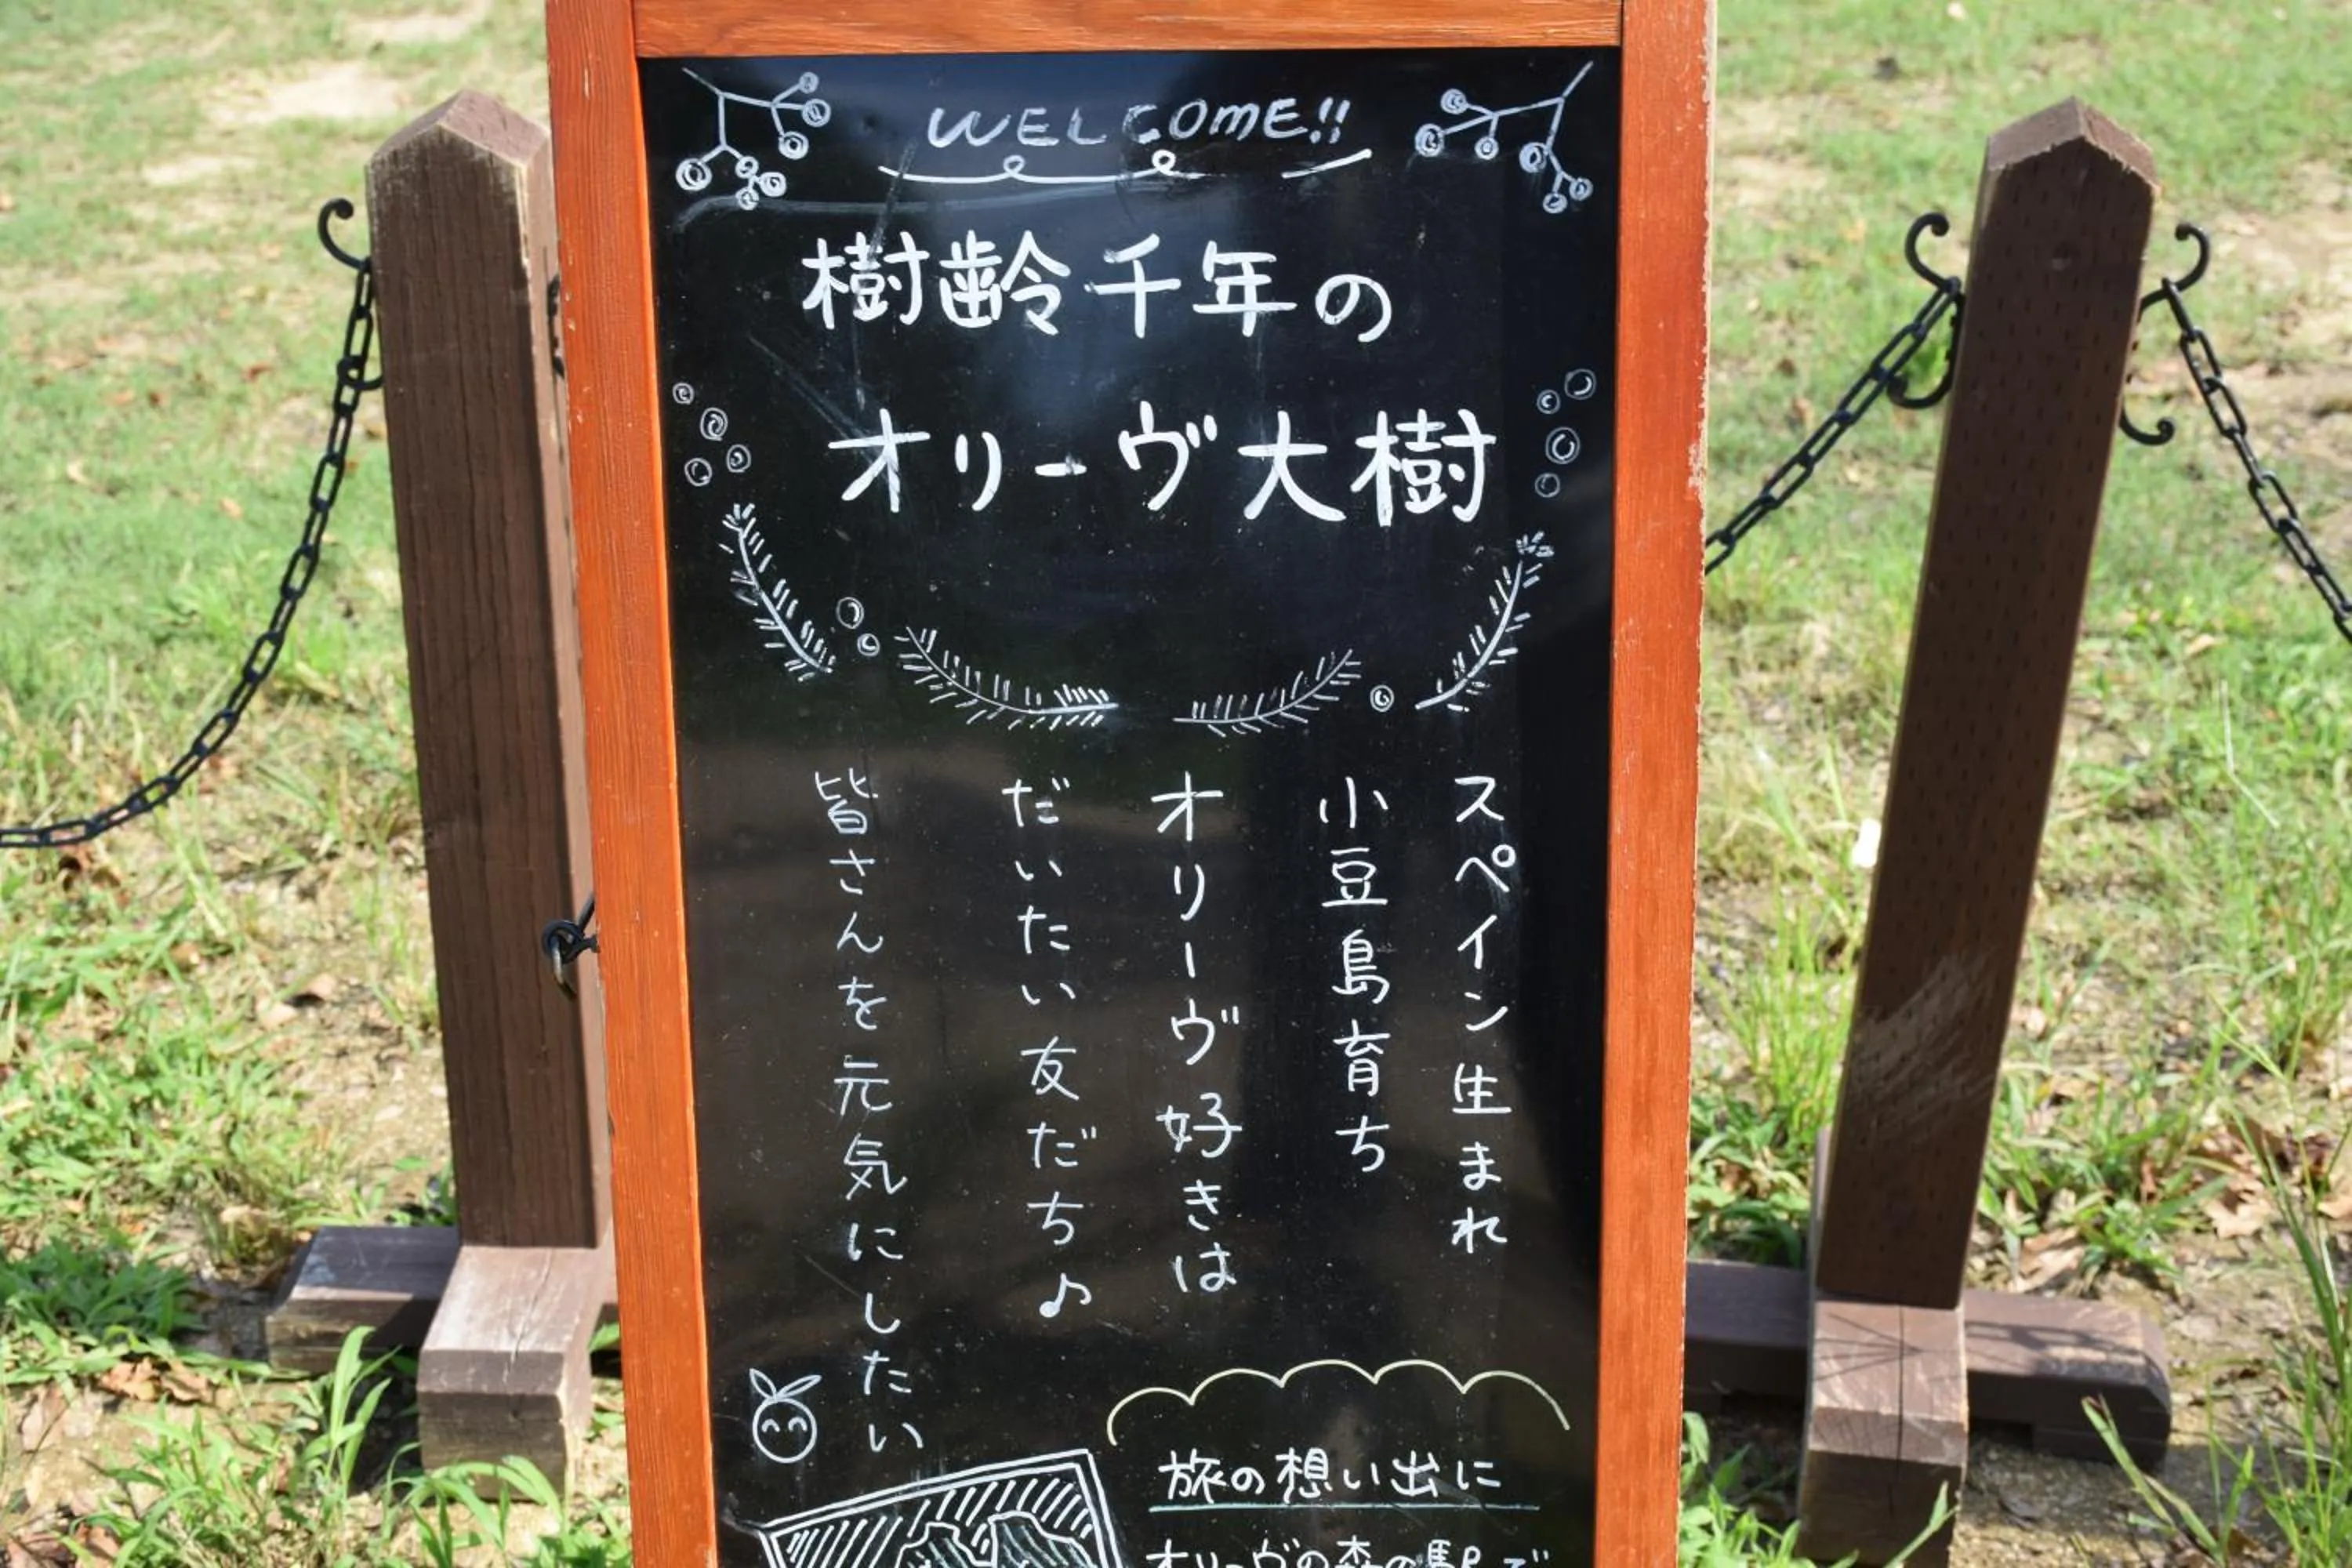 WELCOME!!
樹齢千年の
オリーヴ大樹
スペイン生まれ
小豆島育ち
オリーヴ好きは
だいたい友だち♪
皆さんを元気にしたい
旅の想い出に
オリーヴの森の駅で